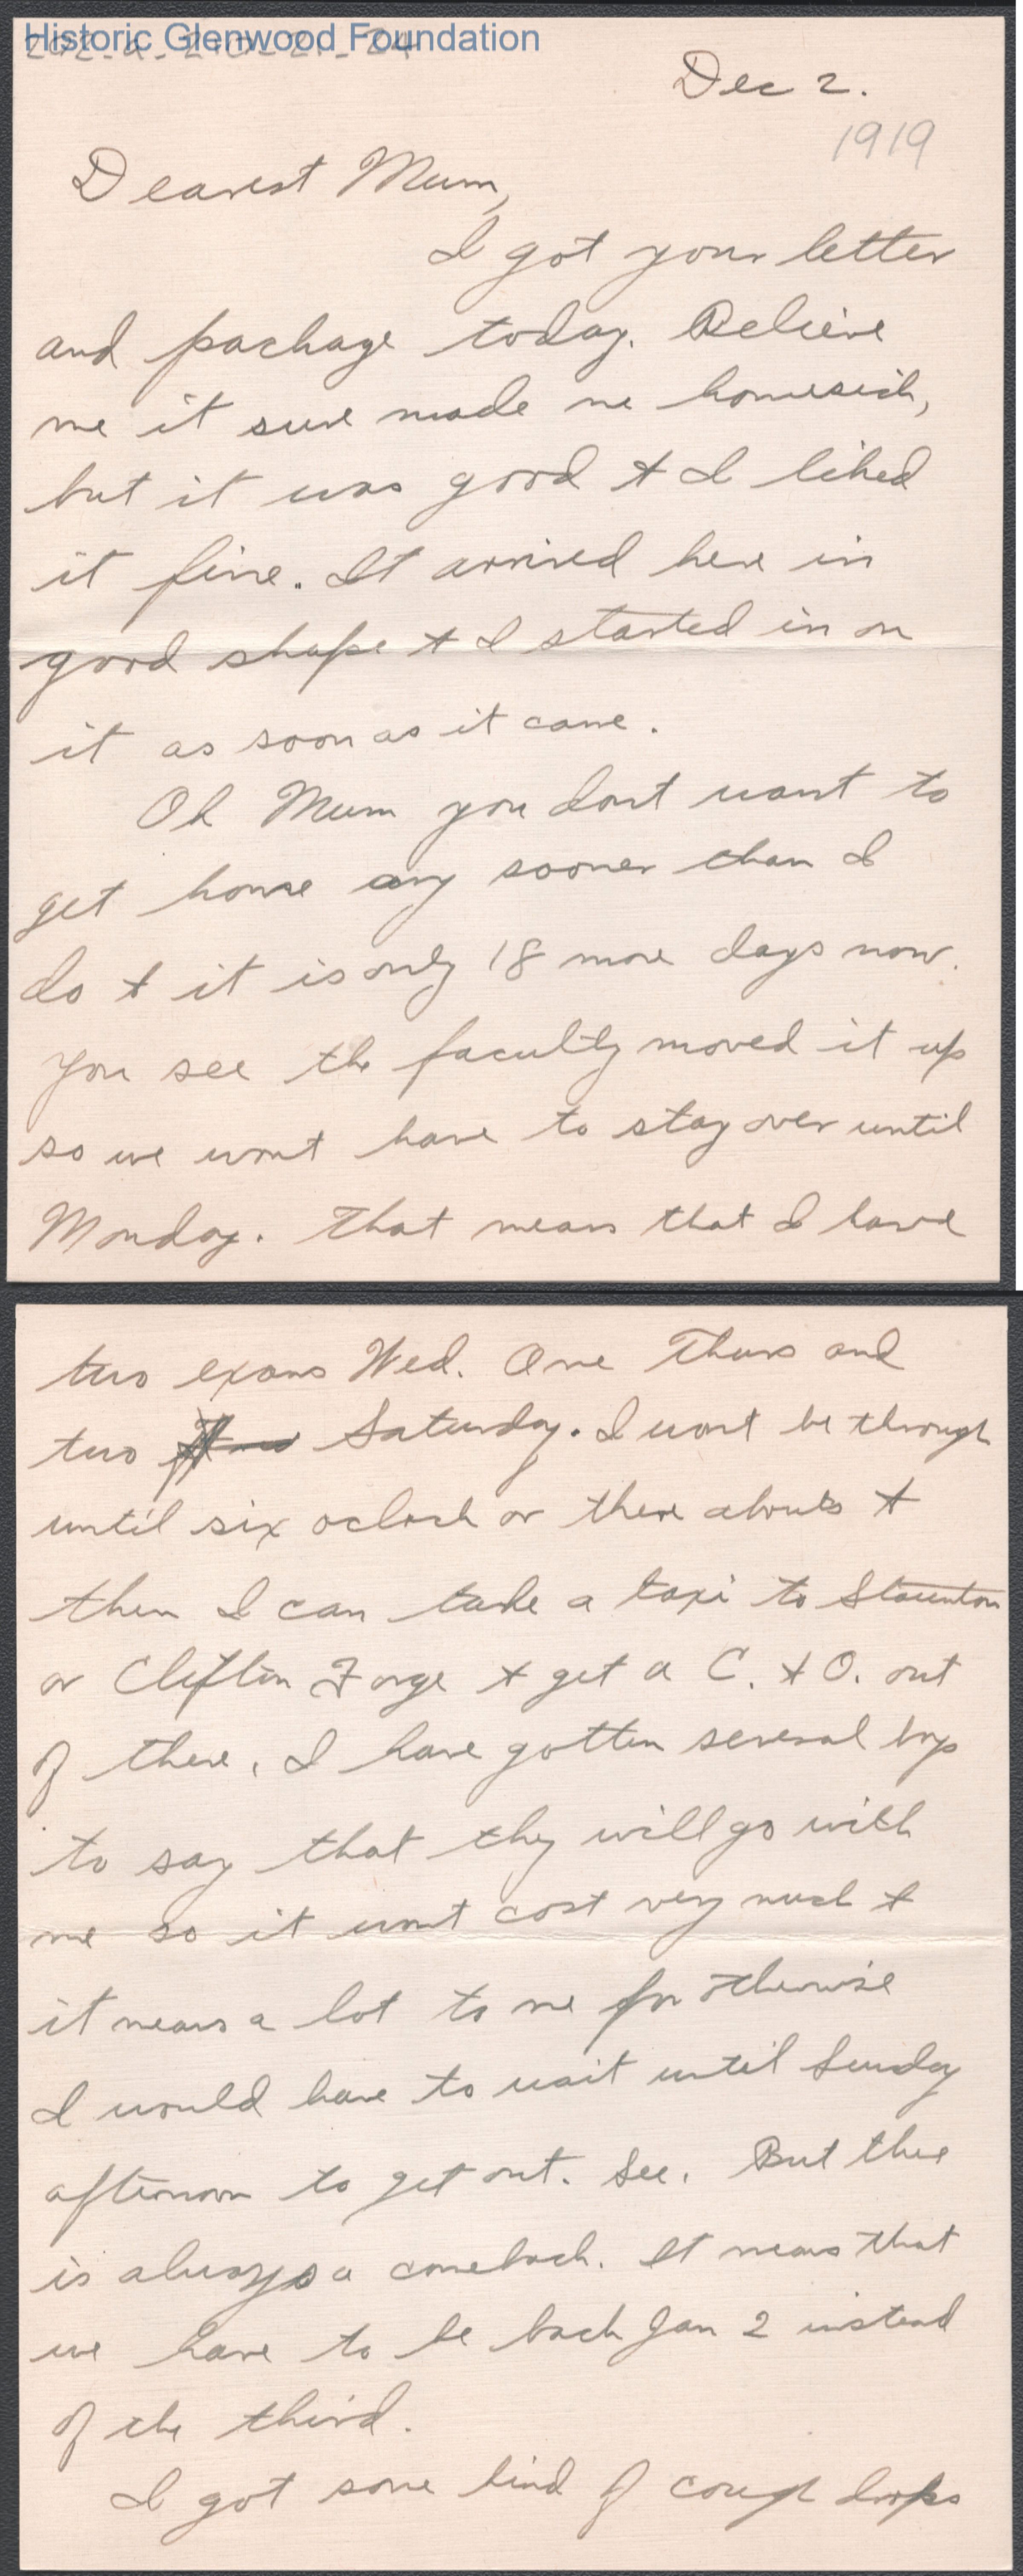 Historic Glenwood Foundation
202-a-210-21-24
Dec 2.
1919
Dearest Mum,
I got your letter
and package today. Believe
me it sure made me homesick,
but it was good & I liked
it fine. It arrived here in
good shape & I started in on
it as soon as it came.
Oh Mum you dont want to
get home any sooner than I
do & it is only 18 more days now.
You see the faculty moved it up
so we wont have to stay over until
Monday. That means that I have
two exams Wed. One Thurs and
two Saturday. I wont be through
until six oclock or there abouts &
then I can take a taxi to Staunton
or Clifton Forge & get a C. & O. out
of there. I have gotten several boys
to say that they will go with
me so it wont cost very much &
it means a lot to me for otherwise
I would have to wait until Sunday
afternoon to get out. See. But there
is always a comeback. It means that
we have to be back Jan 2 instead
of the third.
I got some kind of cough drops